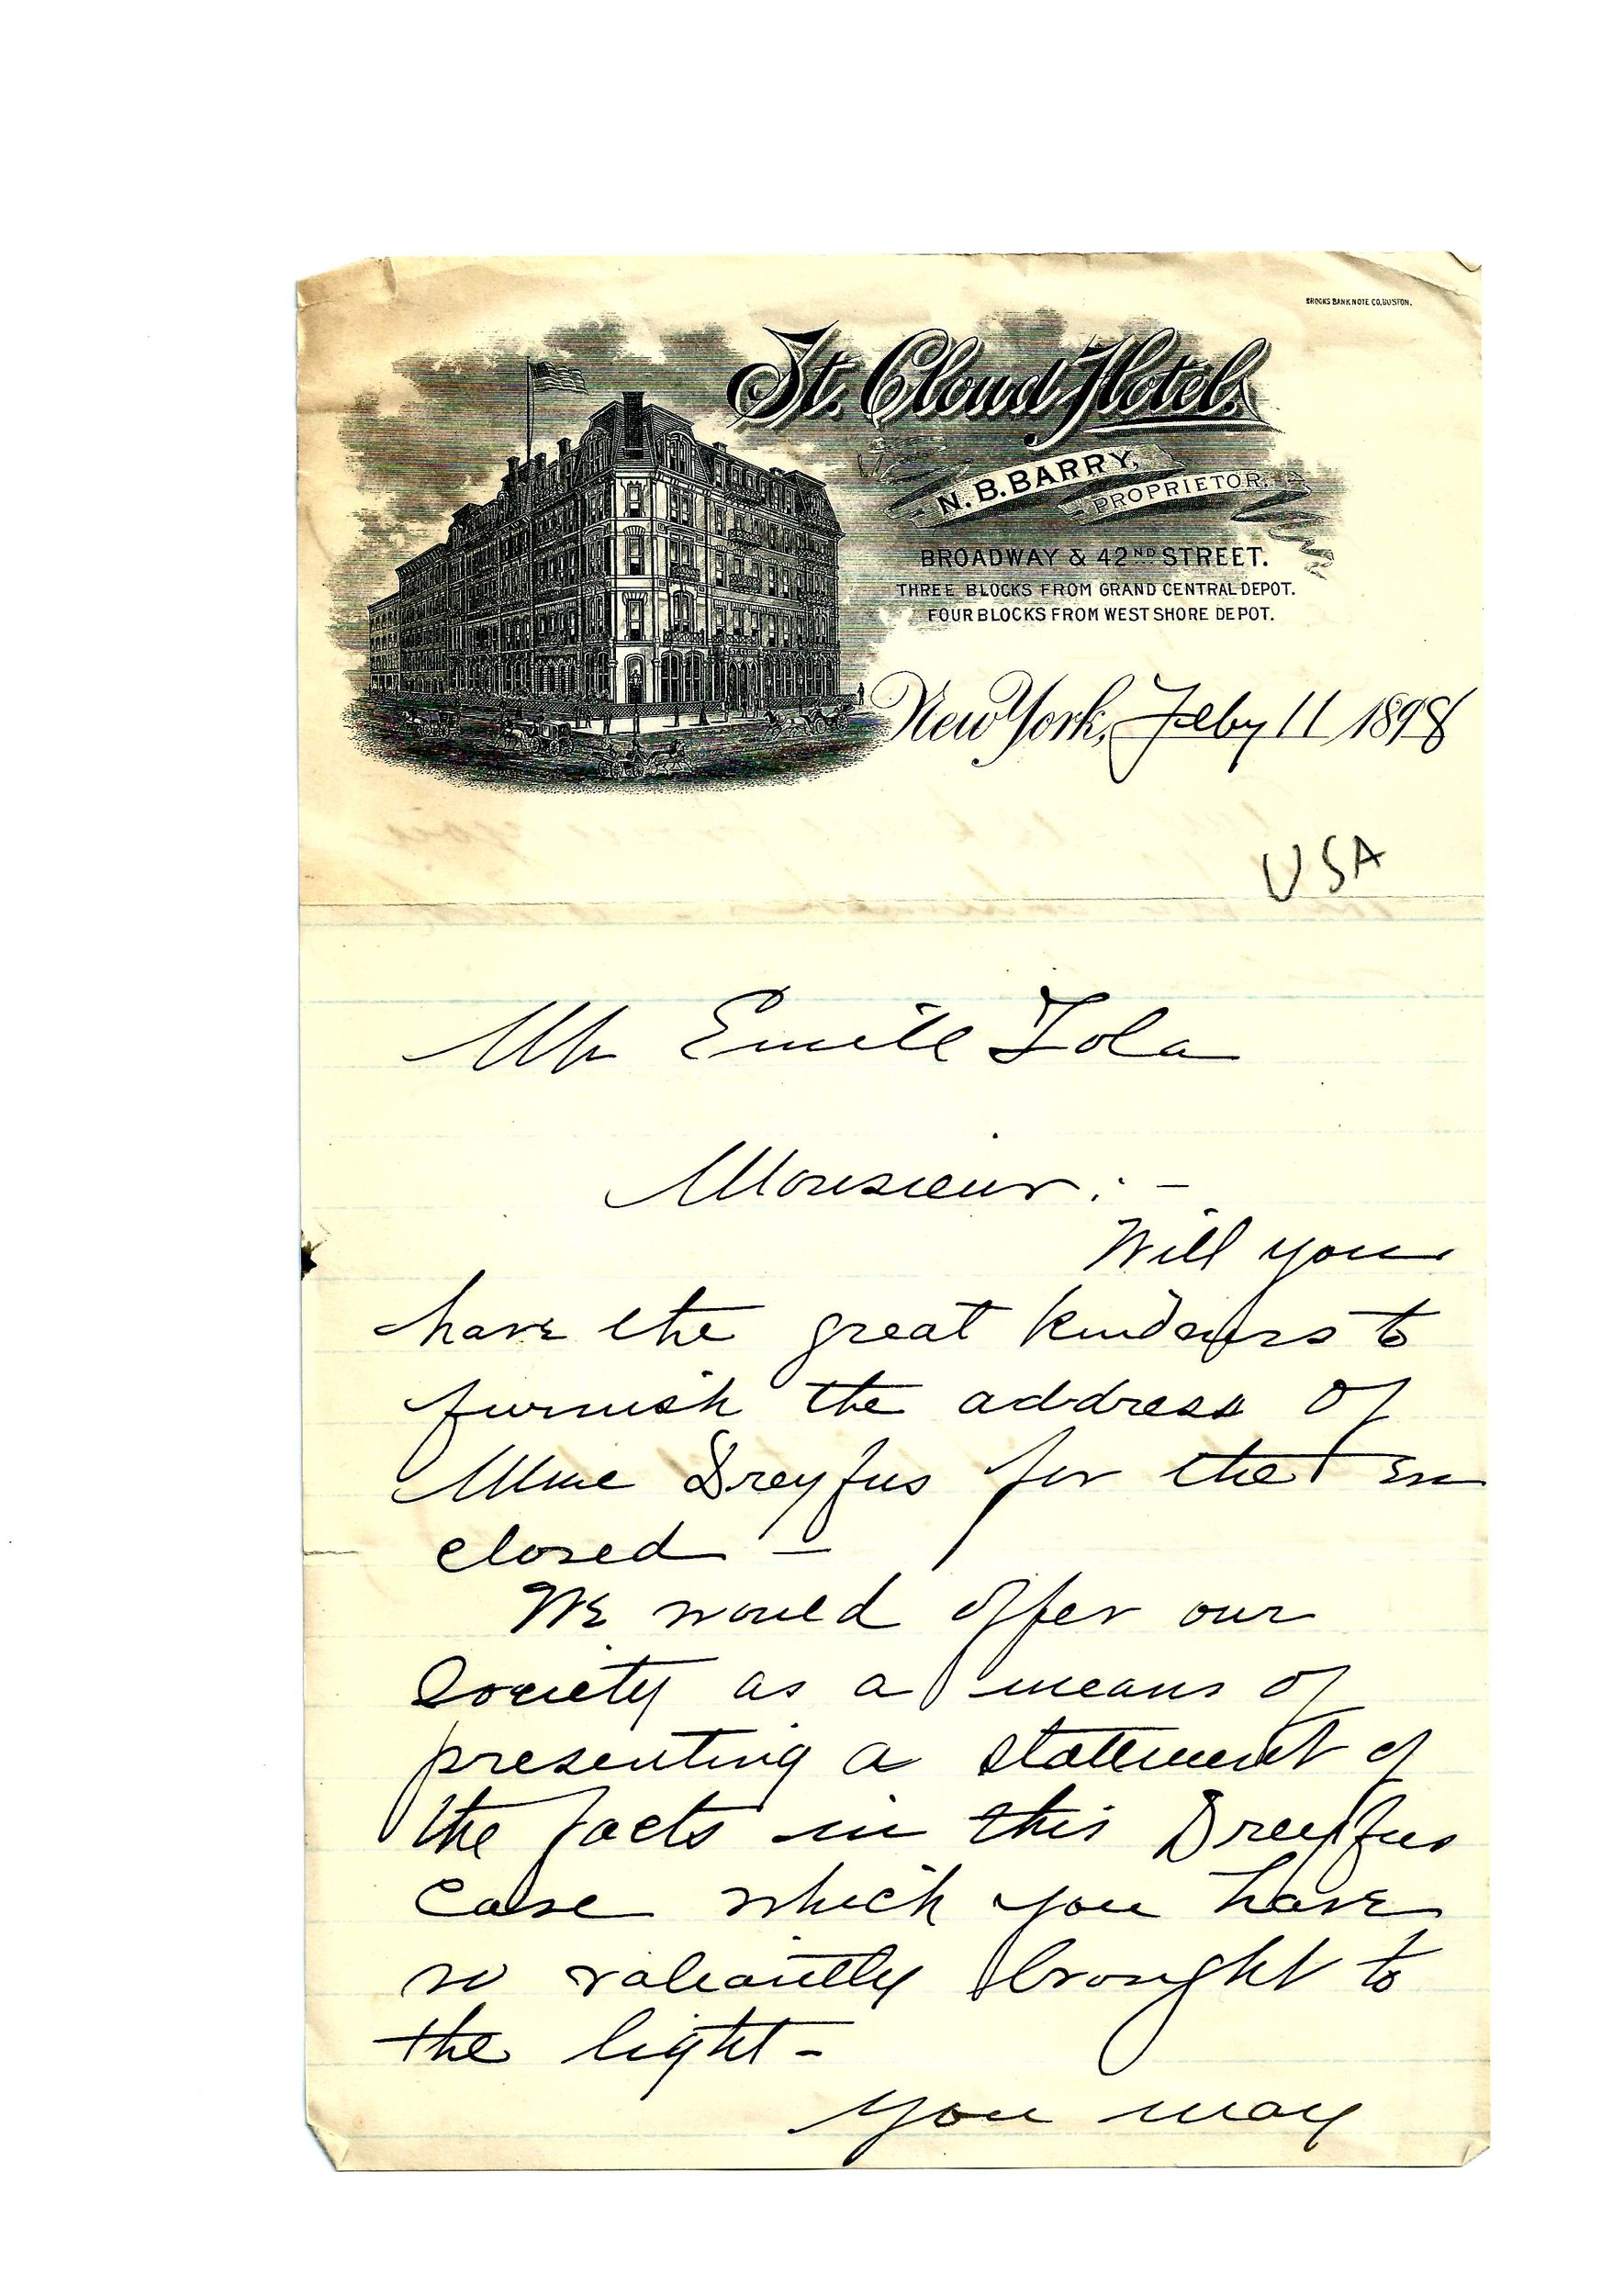 BROOKS BANK NOTE CO. BOSTON.
St. Cloud Hotel.
N. B. BARRY,
PROPRIETOR.
BROADWAY & 42ND STREET.
THREE BLOCKS FROM GRAND CENTRAL DEPOT.
FOUR BLOCKS FROM WEST SHORE DEPOT.
New York, Feby 11 1898
USA
Mr Emile Zola
Monsieur : -
Will you
have the great kindness to
furnish the address of
Mme Dreyfus for the en
closed -
We would offer our
Society as a means of
presenting a statement of
the facts in this Dreyfus
case which you have
so valiantly brought to
the light -
You may